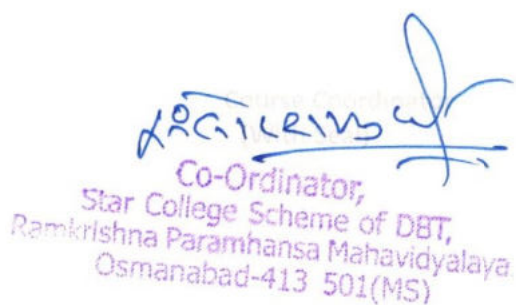 Course Coordinator
Co-Ordinator,
Star College Scheme of DBT,
Ramkrishna Paramhansa Mahavidyalaya
Osmanabad-413 501(MS)